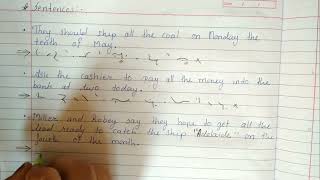 * Sentences:-
• They should ship all the coal on Monday the
tenth of May.
• Ask the cashier to pay all the money into the
bank at two today.
• Miller and Robey say they hope to get all the
load ready to catch the ship "Adelaide" on the
fourth of the month.